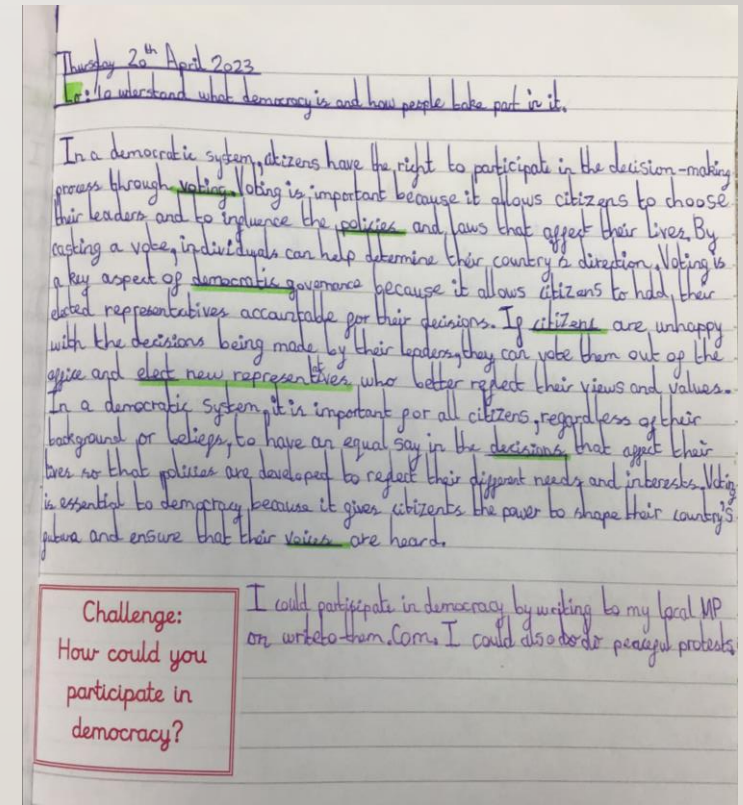 Thursday 20th April 2023
Lo: To understand what democracy is and how people take part in it.
In a democratic system, citizens have the right to participate in the decision-making
process through voting. Voting is important because it allows citizens to choose
their leaders and to influence the policies and laws that affect their lives. By
casting a vote, individuals can help determine their country's direction. Voting is
a key aspect of democratic governance because it allows citizens to hold their
elected representatives accountable for their decisions. If citizens are unhappy
with the decisions being made by their leaders, they can vote them out of the
office and elect new representatives who better reflect their views and values.
In a democratic system, it is important for all citizens, regardless of their
background or beliefs, to have an equal say in the decisions that affect their
lives so that policies are developed to reflect their different needs and interests. Voting
is essential to democracy because it gives citizents the power to shape their country's
future and ensure that their voices are heard.
Challenge:
How could you
participate in
democracy?
I could participate in democracy by writing to my local MP
on writetothem.Com. I could also do do peaceful protests